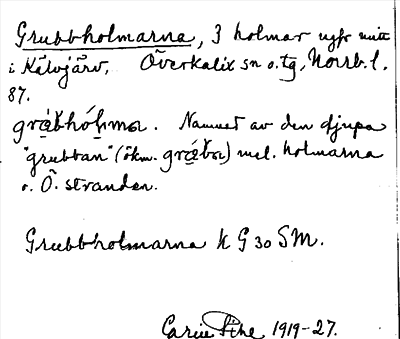 Grubbholmarna, 3 holmar ugfr mitt
i Kälvjärv, Överkalix sn o. tg, Norrb. l.
87.
Namnet av den djupa
"grubban" (ökm. ) mel. holmarna
o. Ö. stranden.
Grubbholmarna k G 30 SM.
Carin Pihl 1919-27.